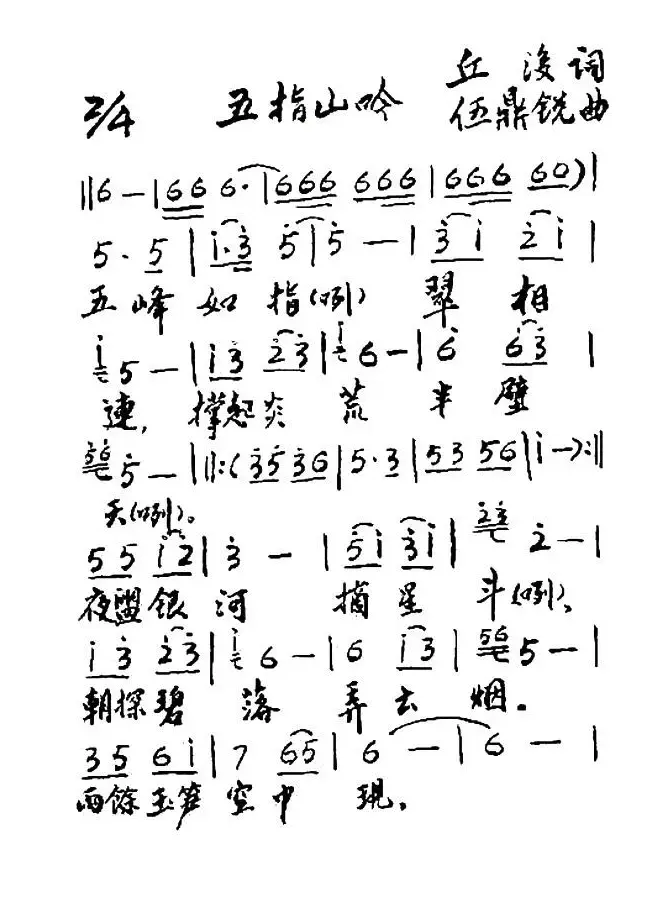 2/4 五指山吟 丘濬词
伍鼎锐曲
||6 — |666 6·|666 666|666 60)|
5·5|i·3 5|5 — |3i 2i|
五峰如指(咧) 翠相
i 5 — |i3 23|i 6 — |6 63|
連,撐起炎荒半壁
556 5 — ||:(3536|5·3|53 56|i —):||
天(咧)。
55 i2|3 — |5i 3i|23 2 — |
夜盥銀河摘星斗(咧),
i3 23|i 6 — |6 i3|56 5 — |
朝探碧落弄云烟。
35 6i|7 65|6 — |6 — |
雨餘玉笋空中現,